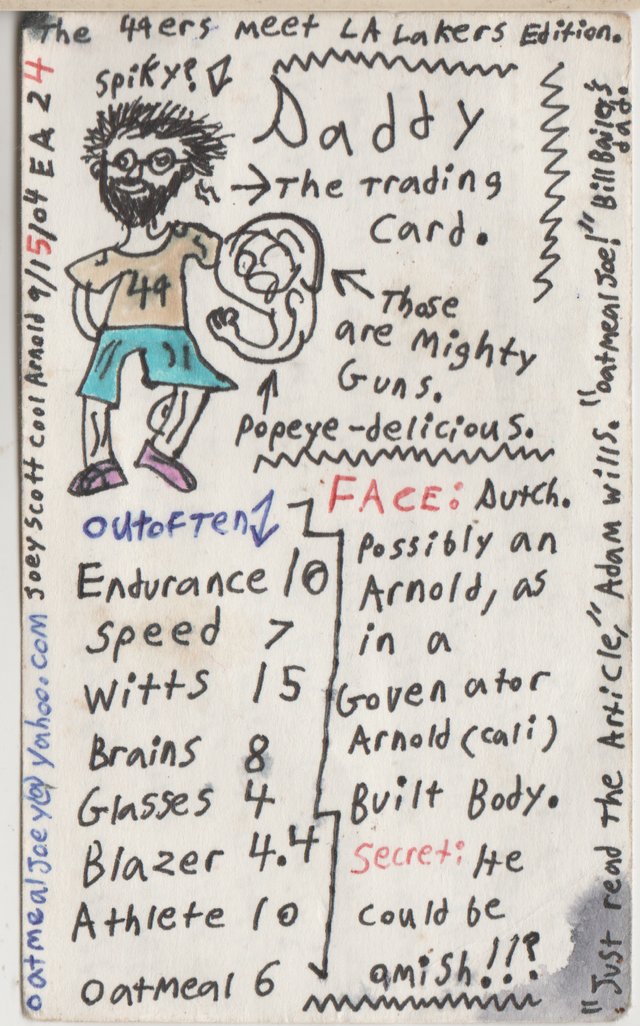 The 44ers meet LA Lakers Edition.
spiky?
Daddy
The Trading
Card.
44
Those
are Mighty
Guns.
Popeye-delicious.
OUT OF TEN
Endurance 10
Speed 7
Witts 15
Brains 8
Glasses 4
Blazer 4.4
Athlete 10
Oatmeal 6
FACE: Dutch.
Possibly an
Arnold, as
in a
Govenator
Arnold (cali)
Built Body.
Secret: He
could be
amish!!?
oatmealJoey@yahoo.com Joey Scott Cool Arnold 9/15/04 EA 24
"Just read The Article," Adam Wills. "Oatmeal Joe!" Bill Bailey's
dad.